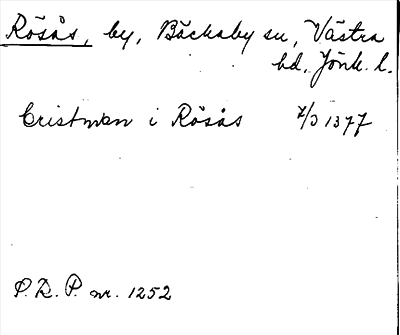 Rösås, by, Bäckaby sn, Västra
hd, Jönk. l.
Cristman i Rösås 7/3 1377
P. R. P. nr. 1252